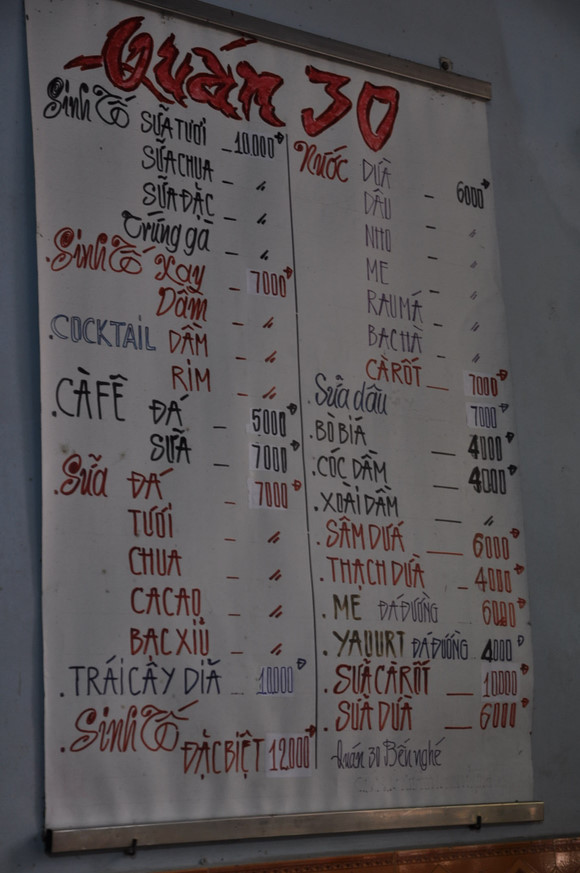 Quán 30
Sinh Tố SỮA TƯƠI - 10.000đ
SỮA CHUA - "
SỮA ĐẶC - "
Trứng gà - "
. Sinh Tố Xay - 7000đ
Dầm - "
. COCKTAIL DẦM - "
RIM - "
. CÀFÊ ĐÁ - 5000đ
SỮA - 7000đ
. Sữa ĐÁ - 7000đ
TƯƠI - "
CHUA - "
CACAO - "
BẠC XIỦ - "
. TRÁI CÂY DIÃ - 10000đ
. Sinh Tố ĐẶC BIỆT 12.000đ
Nước DỪA - 6000đ
DÂU - "
NHO - "
ME - "
RAU MÁ - "
BẠC HÀ - "
CÀ RỐT - 7000đ
. Sữa dâu 7000đ
. BÒ BIÁ - 4000đ
. CÓC DẦM - 4000đ
. XOÀI DẦM - "
. SÂM DỨA - 6000đ
. THẠCH DỪA - 4000đ
. ME ĐÁ ĐƯỜNG 6000đ
. YAUURT ĐÁ ĐƯỜNG 4000đ
. SỮA CÀ RỐT - 10000đ
. SỮA DỪA - 6000đ
Quán 30 Bến nghé